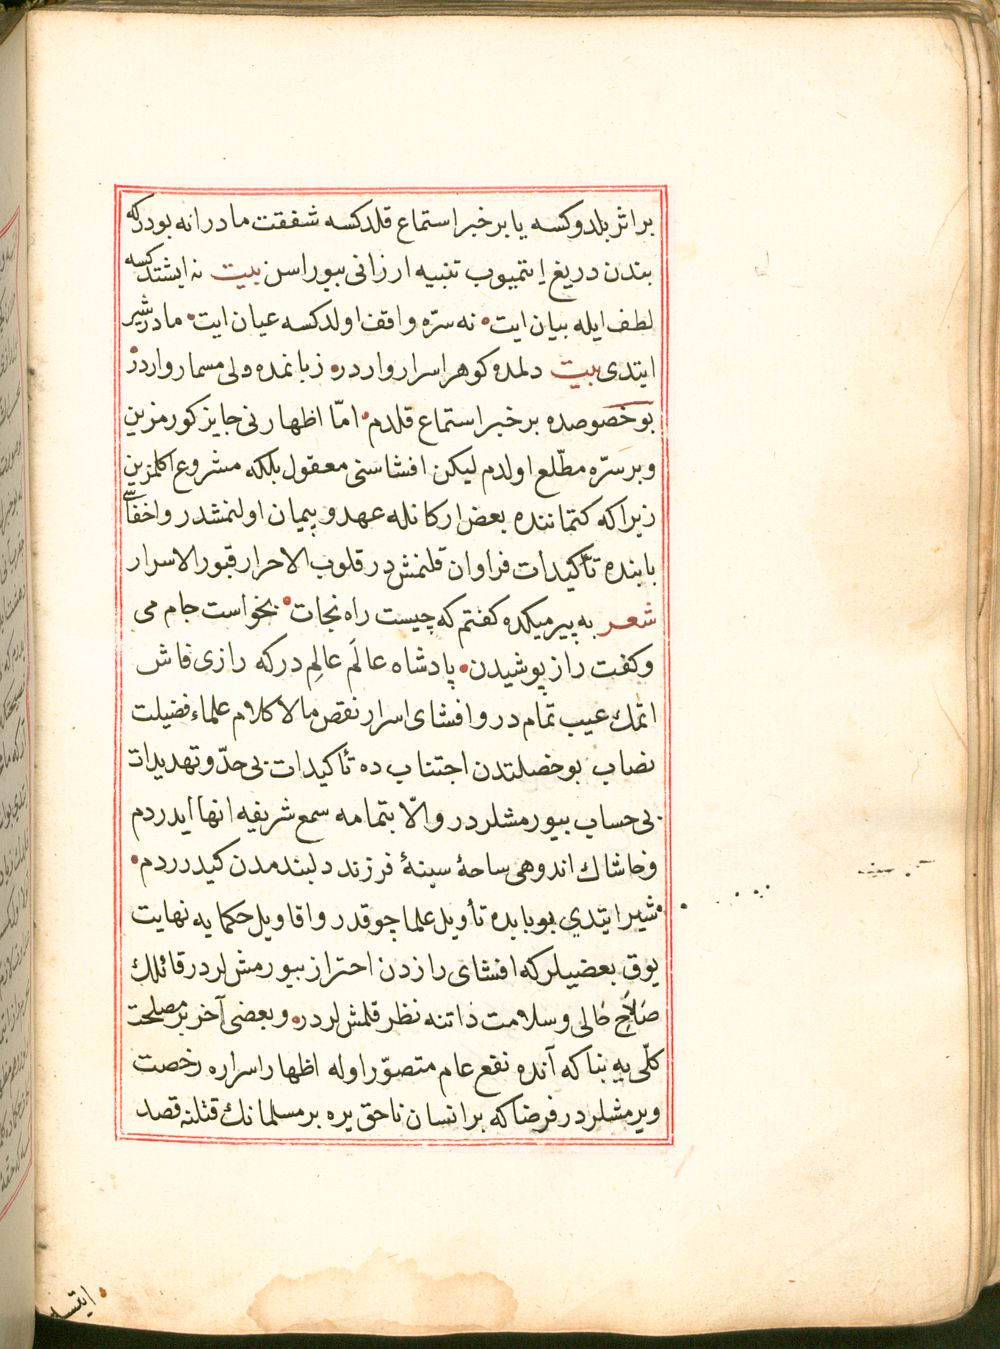 بر اثر بلدوكسه يا بر خبر استماع قلدكسه شفقت مادرانه بودركه
بندن دريغ ايتميوب تنبيه ارزانی بيوراسن بيت نه ايشتدكسه
لطف ايله بيان ايت نه سرّه واقف اولدكسه عيان ايت مادر شير
ايتدی بيت دلمده كوهر اسرار واردر زبانمده ولی مسمار واردر
بو خصوصده بر خبر استماع قلدم امّا اظهارنی جايز كورمزين
و بر سرّه مطّلع اولدم ليكن افشاسنی معقول بلكه مشروع اكلمزين
زيرا كه كتماننده بعض اركانله عهد و پيمان اولنمشدر و اخفاسی
بابنده تأكيدات فراوان قلنمشدر قلوب الاحرار قبور الاسرار
شعر به پير ميكده كفتم كه چيست راه نجات بخواست جام می
و كفت راز پوشيدن پادشاه عالَم عالِم در كه رازی فاش
اتمك عيب تمام در و افشای اسرار نقص مالا كلام علماء فضيلت
نصاب بو خصلتدن اجتناب ده تأكيدات بی حدّ و تهديدات
بی حساب بيورمشلردر والّا بتمامه سمع شريفه انها ايدردم
و خاشاك اندوهی ساحهٔ سينهٔ فرزند دلبندمدن كيدرردم
شير ايتدی بو بابده تأويل علما چوقدر و اقاويل حكمايه نهايت
يوق بعضيلر كه افشای رازدن احتراز بيورمشلردر قائلك
صلاح حالی و سلامت ذاتنه نظر قلمشلردر و بعضی آخر بر مصلحت
كلّی يه بنا كه آنده نفع عام متصوّر اوله اظهار اسراره رخصت
ويرمشلردر فرضا كه بر انسان ناحق يره بر مسلمانك قتلنه قصد